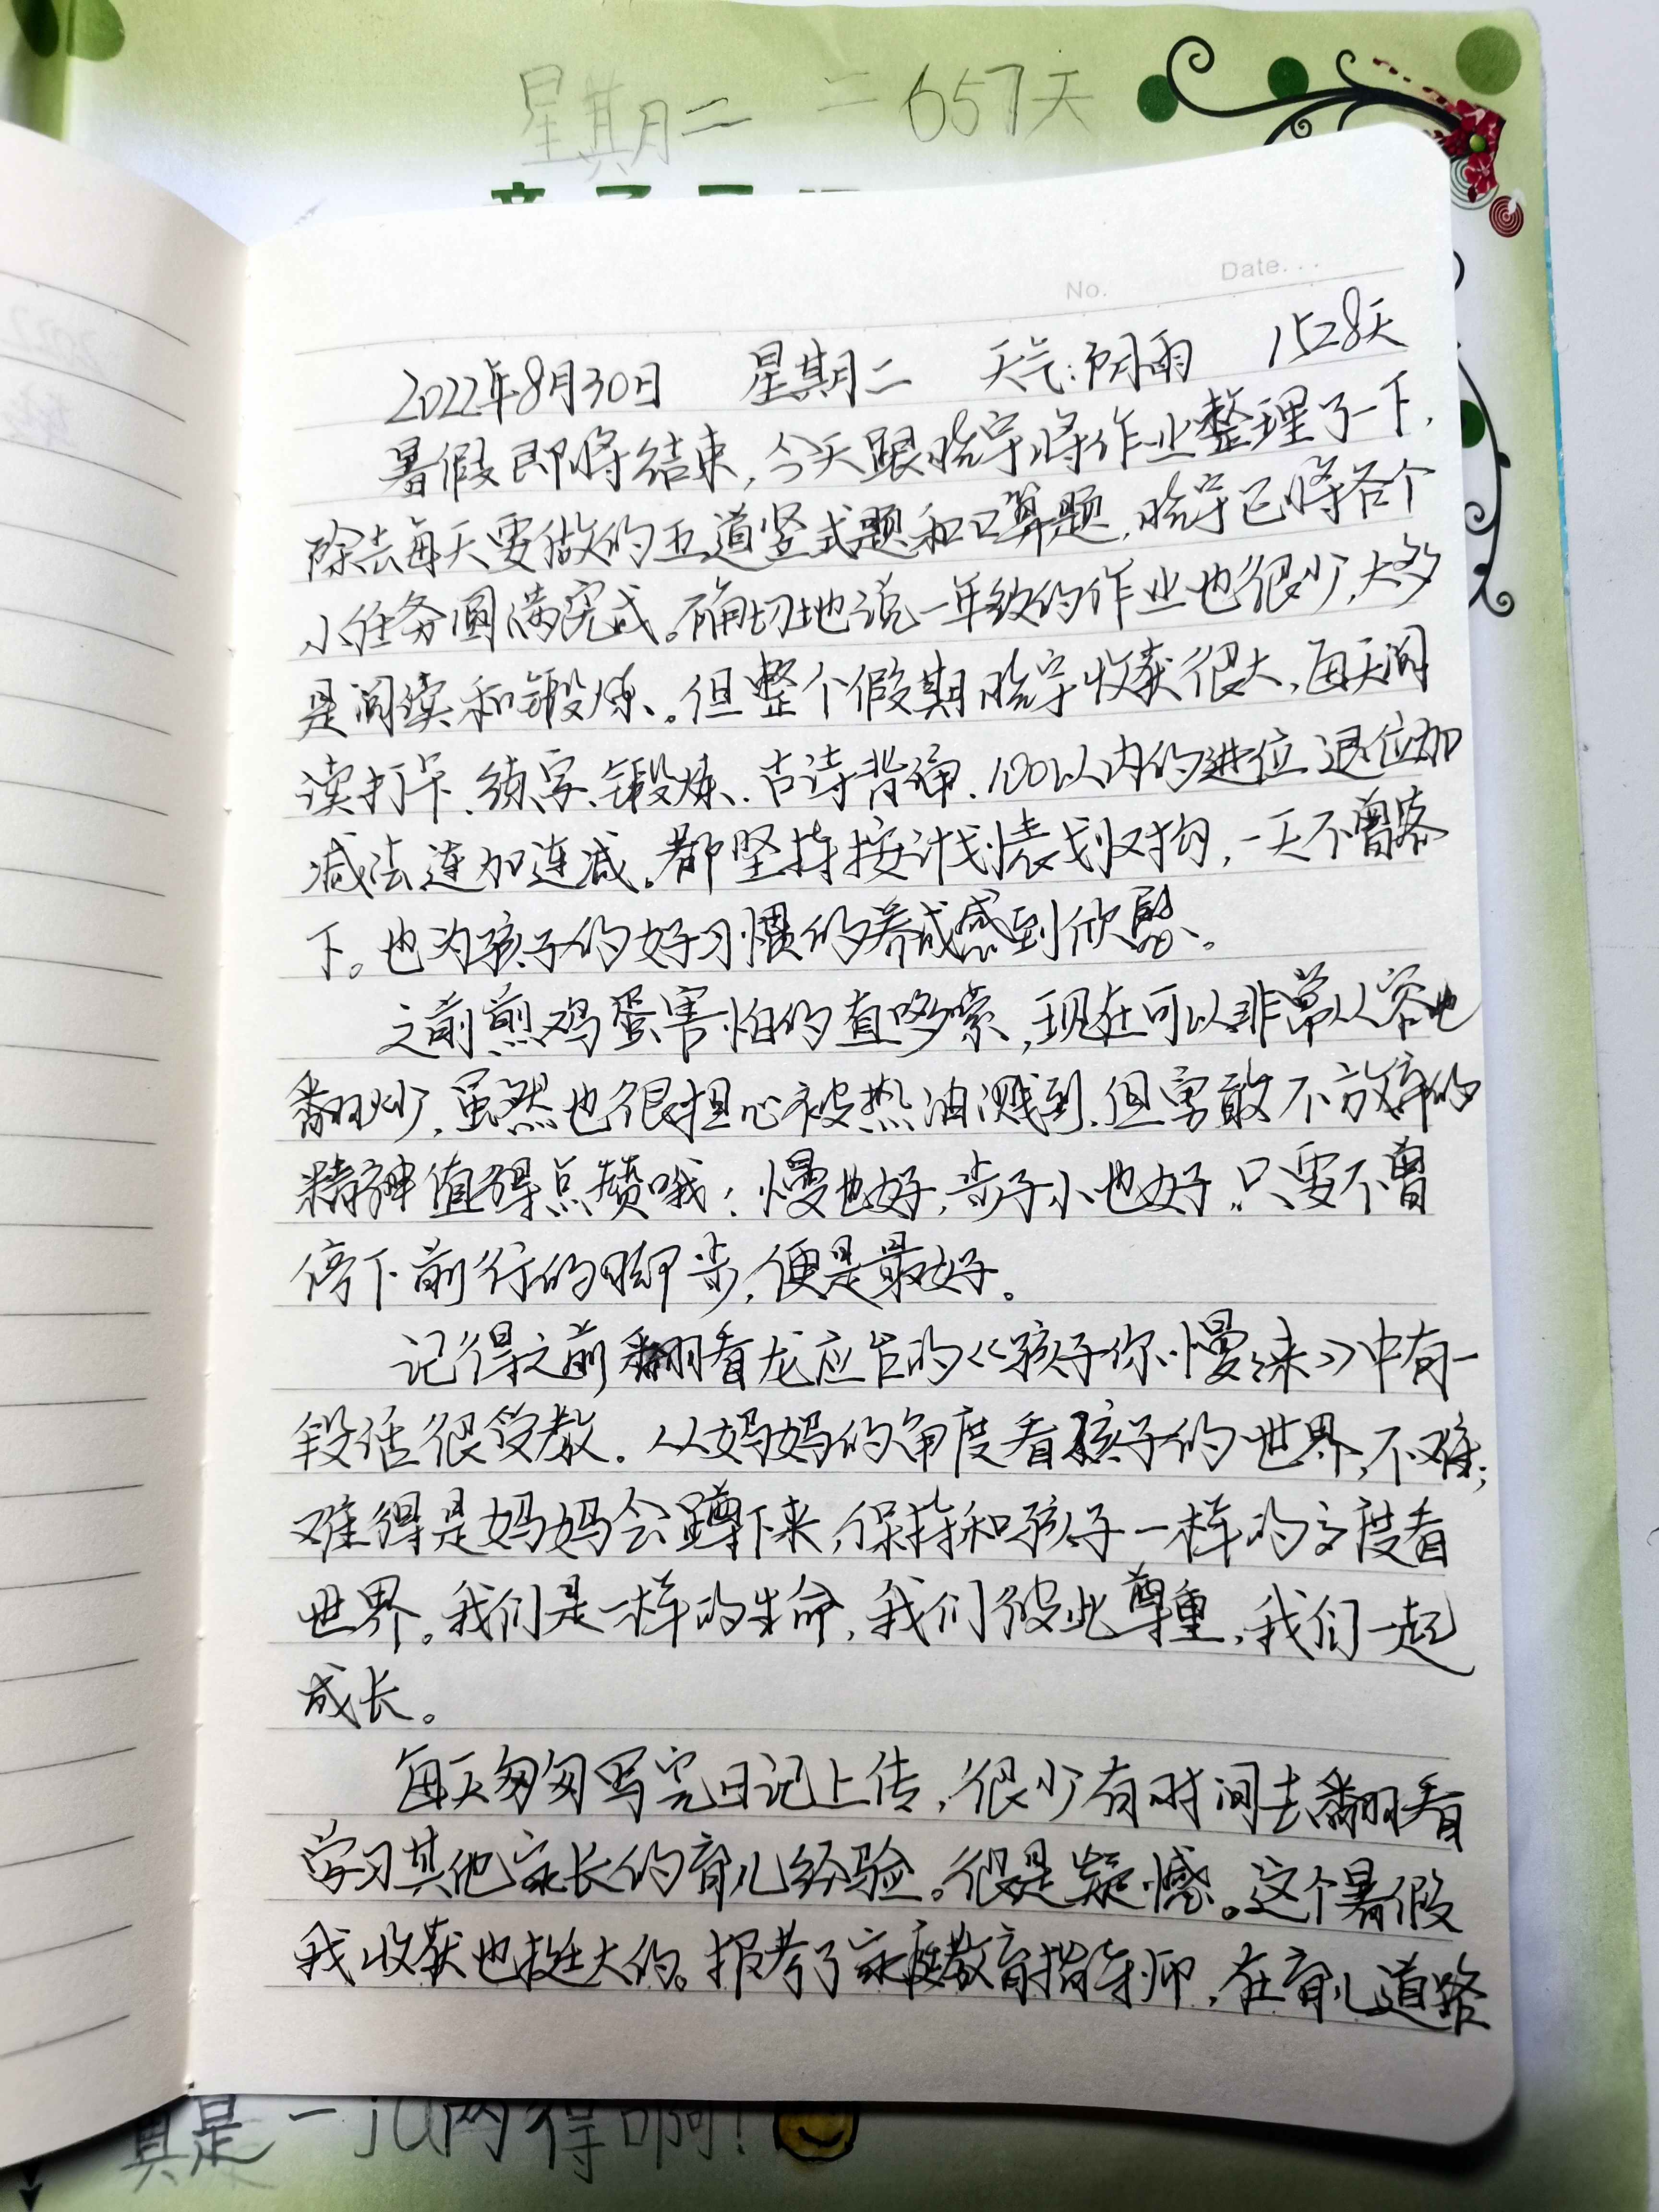 星期二 二 657天
No. Date...
2022年8月30日 星期二 天气:阴雨 1528天
暑假即将结束,今天跟晓宇将作业整理了一下,
除去每天要做的五道竖式题和口算题,晓宇已将各个
小任务圆满完成。确切地说一年级的作业也很少,大多
是阅读和锻炼。但整个假期晓宇收获很大,每天阅
读打卡、练字、锻炼、古诗背诵、100以内的进位退位加
减法连加连减。都坚持按计划表划对钩,一天不曾落
下。也为孩子的好习惯的养成感到欣慰。
之前煎鸡蛋害怕的直哆嗦,现在可以非常从容地
翻炒,虽然也很担心被热油溅到,但勇敢不放弃的
精神值得点赞哦!慢也好,步子小也好,只要不曾
停下前行的脚步,便是最好。
记得之前翻看龙应台的《孩子你慢慢来》中有一
段话很受教。从妈妈的角度看孩子的世界,不难;
难得是妈妈会蹲下来,保持和孩子一样的高度看
世界。我们是一样的生命,我们彼此尊重,我们一起
成长。
每天匆匆写完日记上传,很少有时间去翻看
学习其他家长的育儿经验。很是疑憾。这个暑假
我收获也挺大的。报考了家庭教育指导师,在育儿道路
真是一jǔ两得啊!